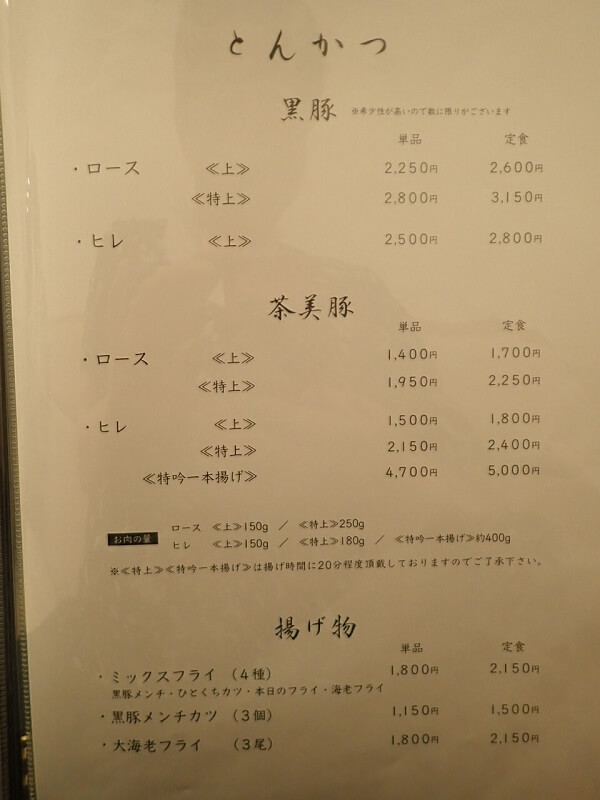 とんかつ
黒豚 ※希少性が高いので数に限りがございます
単品 定食
・ロース ≪上≫ 2,250円 2,600円
≪特上≫ 2,800円 3,150円
・ヒレ ≪上≫ 2,500円 2,800円
茶美豚
単品 定食
・ロース ≪上≫ 1,400円 1,700円
≪特上≫ 1,950円 2,250円
・ヒレ ≪上≫ 1,500円 1,800円
≪特上≫ 2,150円 2,400円
≪特吟一本揚げ≫ 4,700円 5,000円
お肉の量 ロース ≪上≫150g ／ ≪特上≫250g
ヒレ ≪上≫150g ／ ≪特上≫180g ／ ≪特吟一本揚げ≫約400g
※≪特上≫≪特吟一本揚げ≫は揚げ時間に20分程度頂戴しておりますのでご了承下さい。
揚げ物
単品 定食
・ミックスフライ （４種） 1,800円 2,150円
黒豚メンチ・ひとくちカツ・本日のフライ・海老フライ
・黒豚メンチカツ （３個） 1,150円 1,500円
・大海老フライ （３尾） 1,800円 2,150円